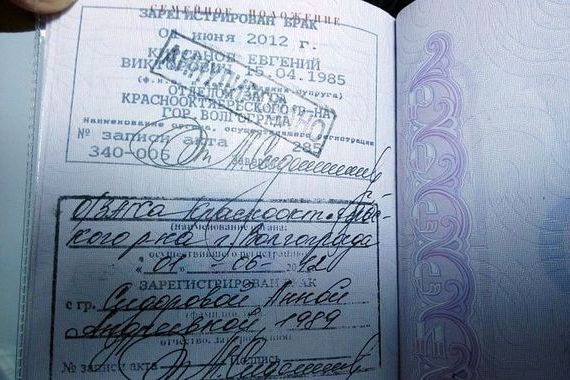 СЕМЕЙНОЕ ПОЛОЖЕНИЕ
ЗАРЕГИСТРИРОВАН БРАК
01 июня 2012 г.
ЕВГЕНИЙ
15.04.1985
ОТДЕЛОМ ЗАГСА
КРАСНООКТЯБРЬСКОГО Р-НА
ГОР. ВОЛГОГРАДА
Наименование органа, осуществившего регистрацию
№ записи акта 285
340-006
О/ЗАГСа Краснооктябрьс-
кого р-на г. Волгограда
(наименование органа,
осуществившего регистрацию)
"01" 06 2012
ЗАРЕГИСТРИРОВАН БРАК
с гр. Сидоровой Анной
Андреевной, 1989
отчество, дата рождения)
№ записи акта Подпись